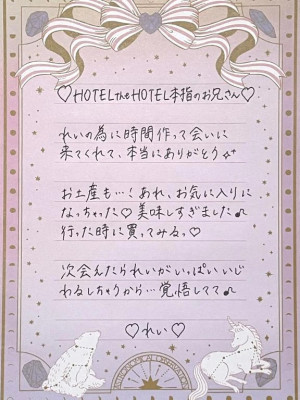 ♡HOTEL the HOTEL本指のお兄さん♡
れいの為に時間作って会いに
来てくれて、本当にありがとう
お土産も…!あれ、お気に入りに
なっちゃった♡美味しすぎました♪
行った時に買ってみるっ♡
次会えたられいがいっぱいいじ
わるしちゃうから…覚悟してて♪
♡れい♡
ASTRONOMICAL OBSERVATION